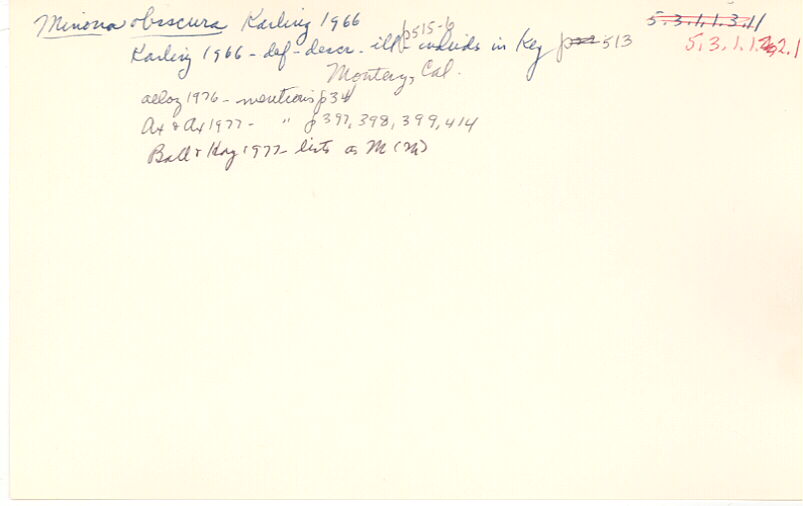 Minona obscura Karling 1966 5.3.1.1.3.11
Karling 1966 - def - descr - ill p515-6 includes in key p 513 5.3.1.1.2.1
Montery, Cal.
1976 - mentions p34
Ax & Ax 1977 - " p 397, 398, 399, 414
Ball & Hay 1977 - lists as M (M)